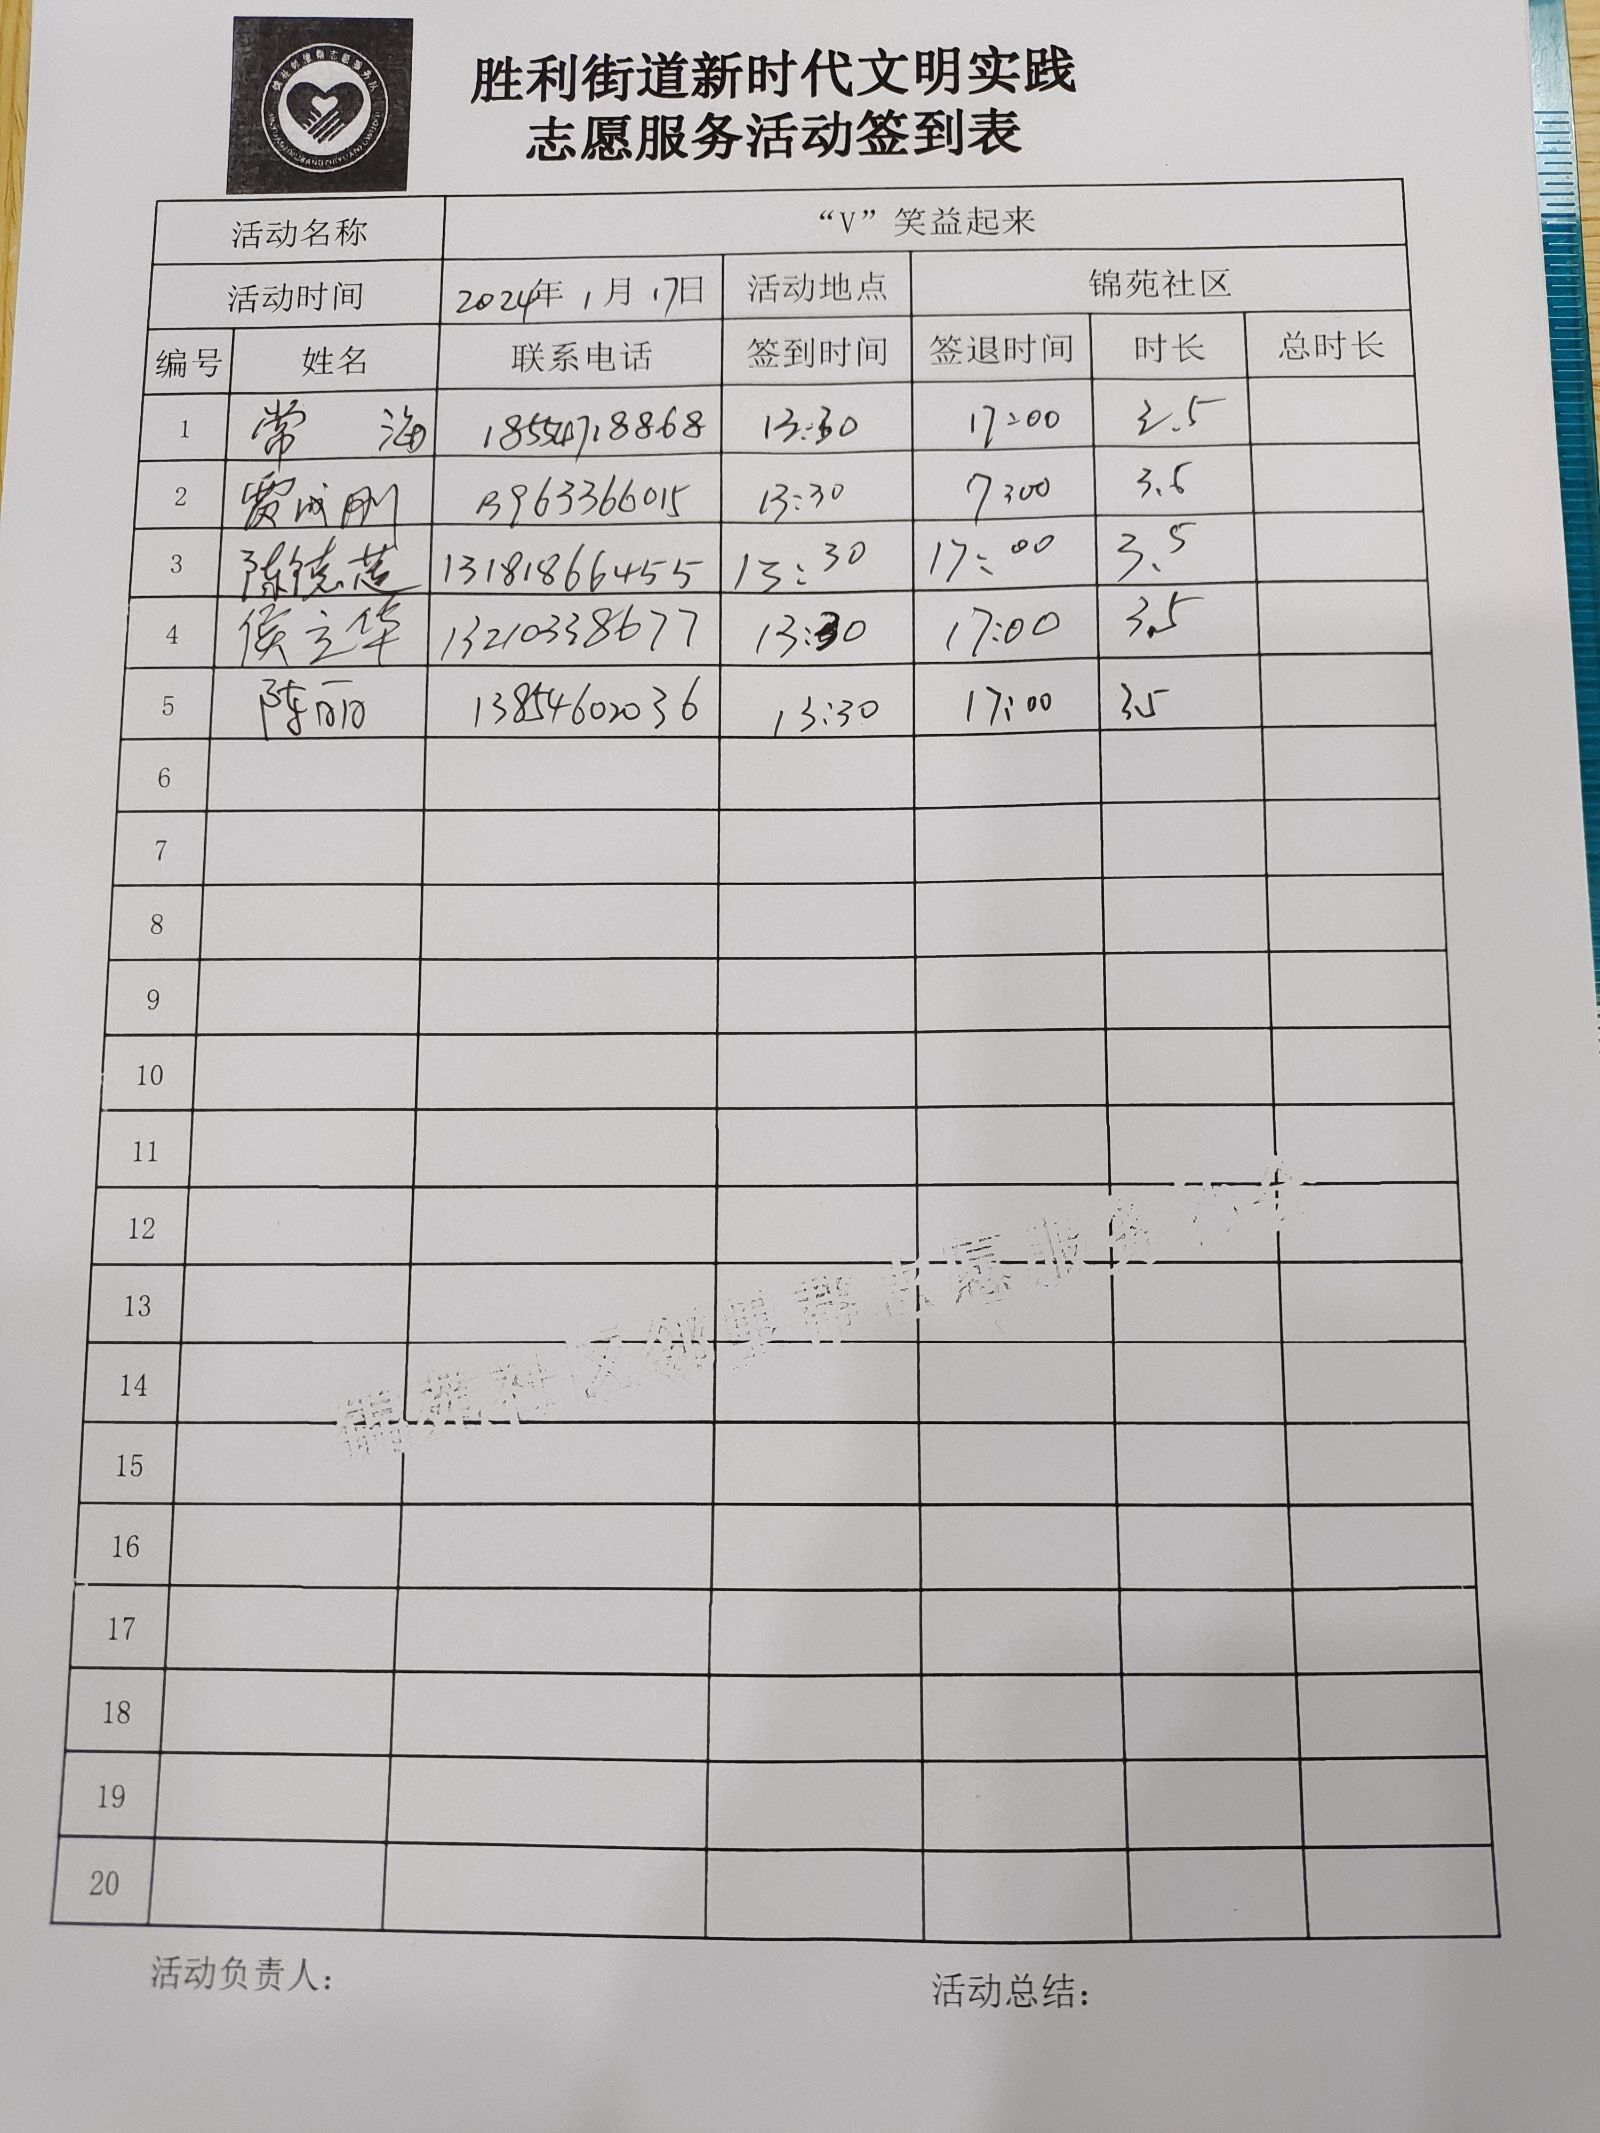 胜利街道新时代文明实践
志愿服务活动签到表
活动名称 “V”笑益起来
活动时间 2024年 1月 17日 活动地点 锦苑社区
编号 姓名 联系电话 签到时间 签退时间 时长 总时长
1 常 海 18554718868 13:30 17:00 3.5
2 贾成刚 13963366015 13:30 17:00 3.5
3 陈德 13181866455 13:30 17:00 3.5
4 侯立华 13210338677 13:30 17:00 3.5
5 陈丽 13854602036 13:30 17:00 3.5
6
7
8
9
10
11
12
13
14
15
16
17
18
19
20
锦苑社区邻里帮志愿服务
活动负责人：
活动总结：